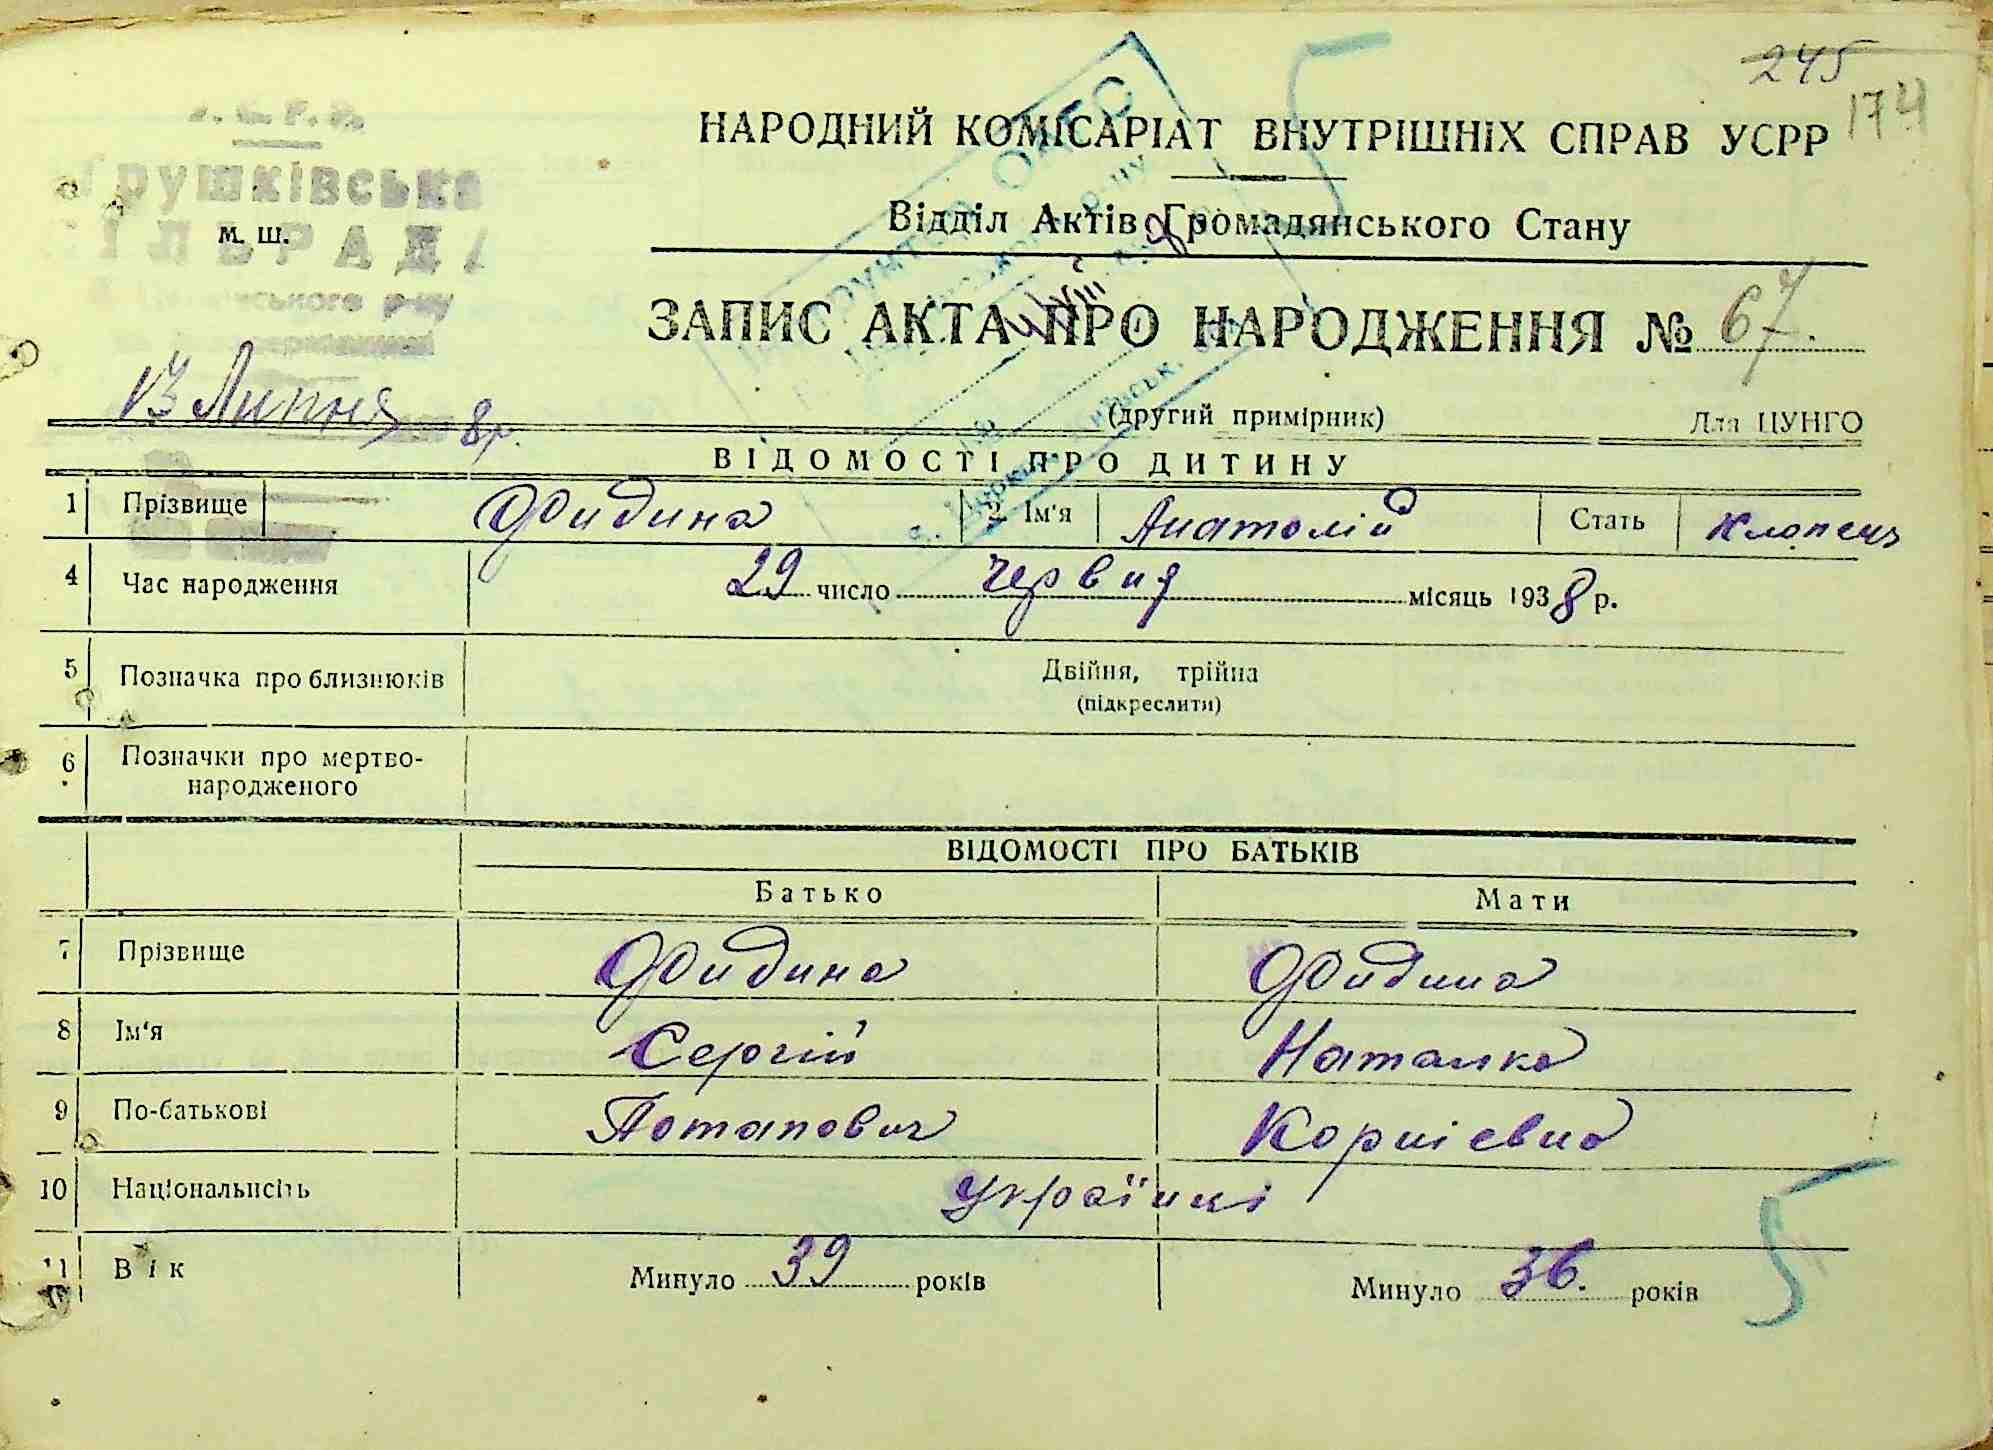 245
174
НАРОДНИЙ КОМІСАРІАТ ВНУТРІШНІХ СПРАВ УСРР
Грушківська
СІЛЬРАДА
м. ш.
р-ну
Відділ Актів Громадянського Стану
ЗАПИС АКТА ПРО НАРОДЖЕННЯ № 67.
13 Липня 8р.
(другий примірник) Для ЦУНГО
ВІДОМОСТІ ПРО ДИТИНУ
1 Прізвище Фидина 2 Ім'я Анатолій Стать Хлопець
4 Час народження 29 число Червня місяць 1938 р.
5 Позначка про близнюків Двійня, трійна
(підкреслити)
6 Позначки про мертво-
народженого
ВІДОМОСТІ ПРО БАТЬКІВ
Батько Мати
7 Прізвище Фидина Фидина
8 Ім'я Сергій Наталка
9 По-батькові Потапович Корнієвна
10 Національність Українці
11 Вік Минуло 39 років Минуло 36. років
5